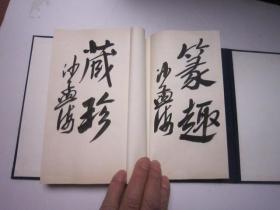 篆趣
沙孟海
藏珍
沙孟海